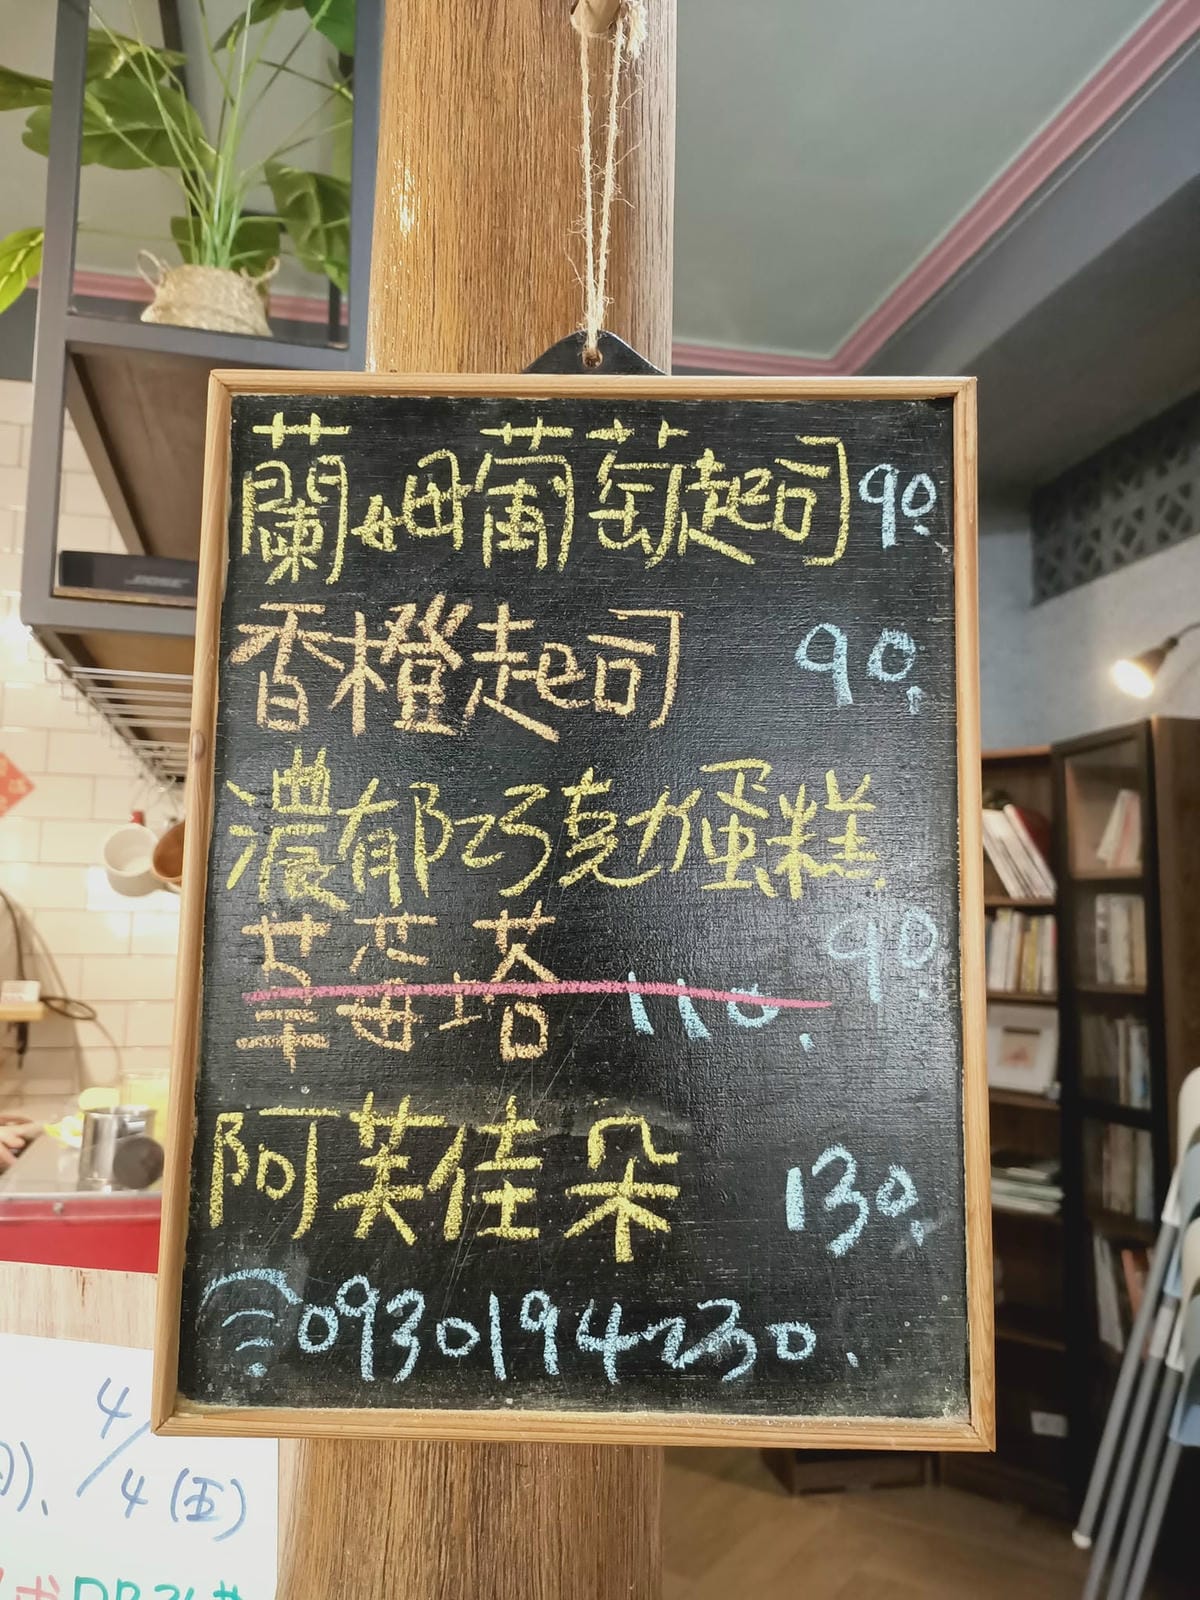 蘭姆葡萄起司 90.
香橙起司 90.
濃郁巧克力蛋糕
90.
草莓塔 110.
阿芙佳朵 130.
0930194230.
BOSE
4/4(五)